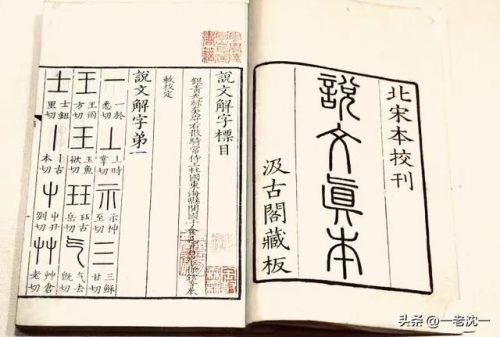 北宋本校刊
說文眞本
汲古閣藏板
說文解字標目
銀青光祿大夫守右散騎常侍上柱國東海縣開國子食邑五百戶臣徐鉉等奉
敕校定
說文解字第一
一 一於悉切 丄 上時掌切 示 示神至切 三 三穌甘切
王 王雨方切 玉 玉魚欲切 玨 玨古岳切 气 气去旣切
士 士鉏里切 丨 丨古本切 屮 屮丑列切 艸 艸倉老切
头条 @一老沈一